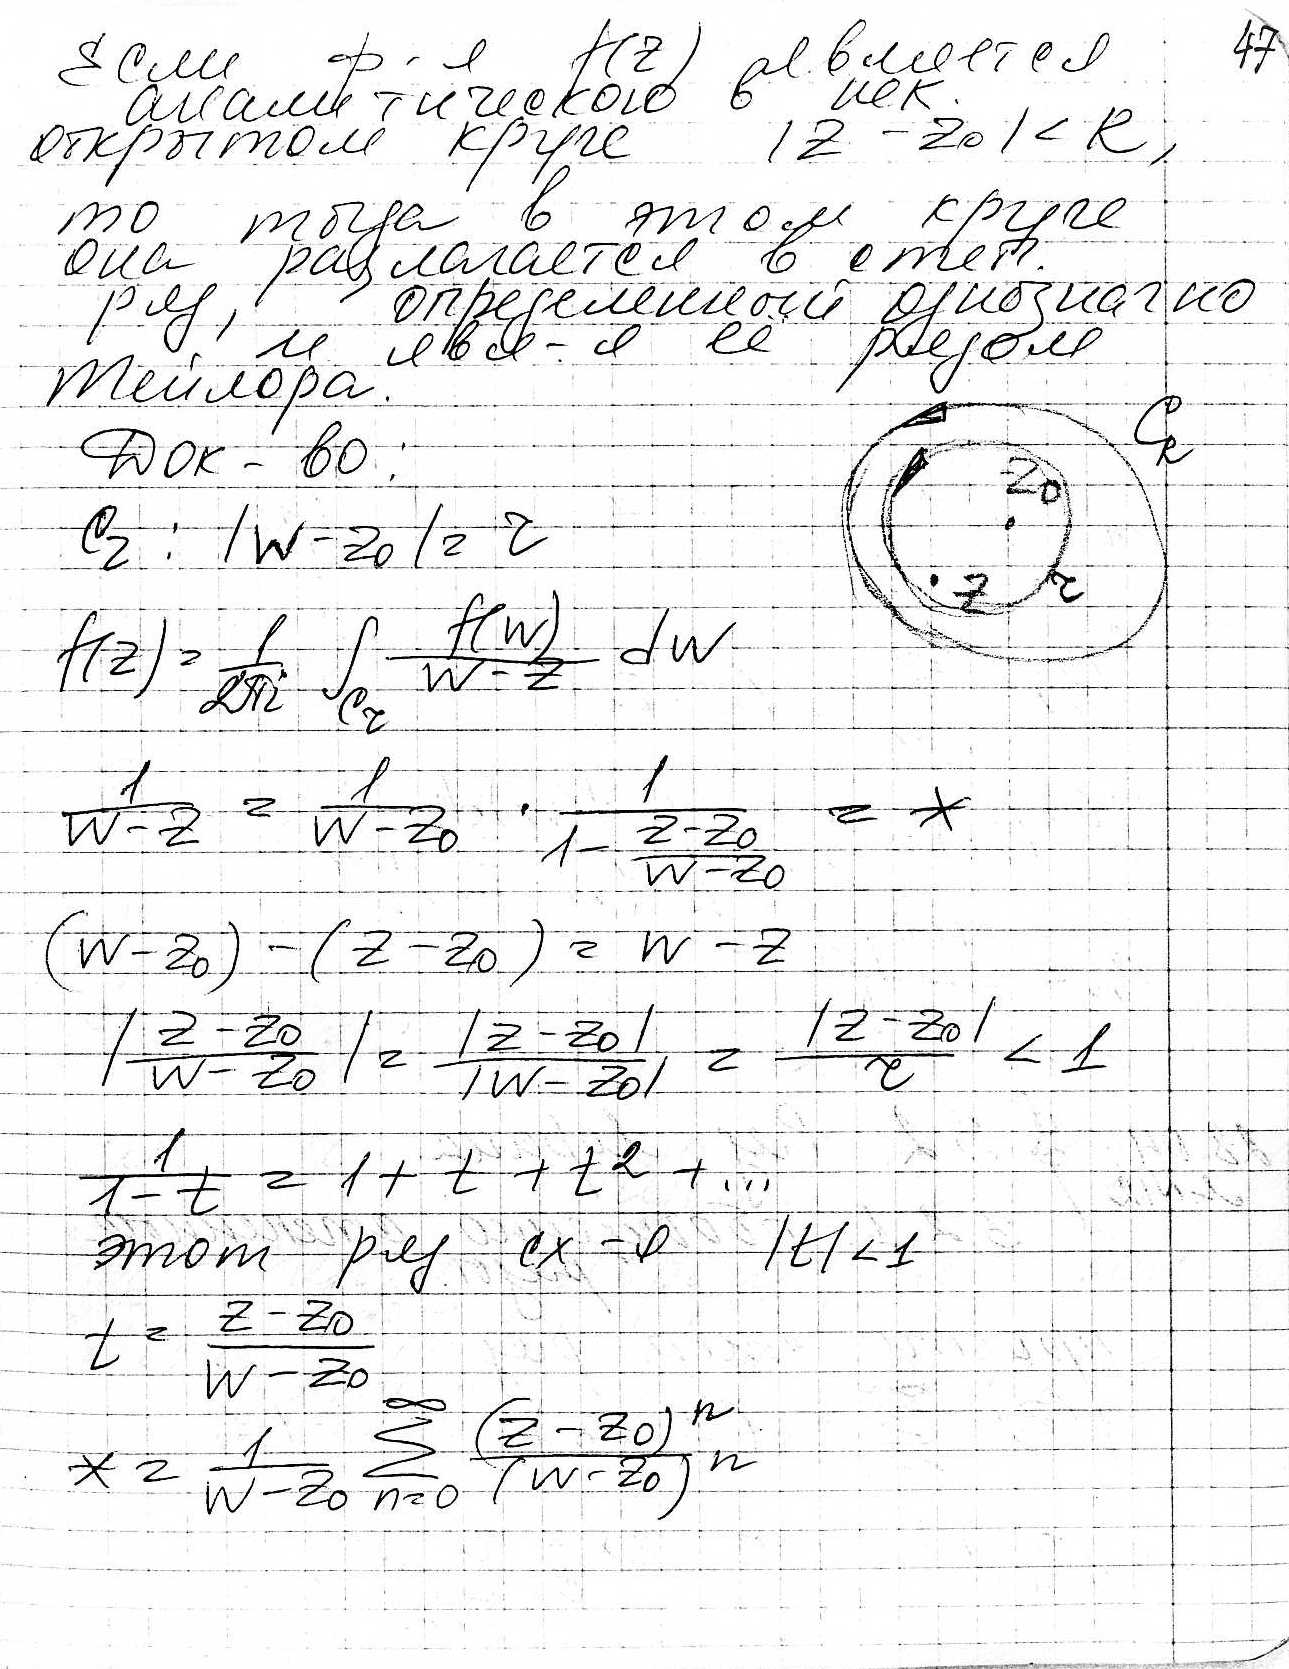 47
Если ф-я f(z) является
аналитического в нек.
открытом круге |z - z₀| < R,
то тогда в этом круге
она разлагается в степ.
ряд, определенный однозначно
и явл-я её рядом
Тейлора.
Док-во:
C_R
z₀
z
r
C_r : |w - z₀| = r
f(z) = 1/(2πi) ∫_{C_r} f(w)/(w - z) dw
1/(w - z) = 1/(w - z₀) · 1/(1 - (z - z₀)/(w - z₀)) = *
(w - z₀) - (z - z₀) = w - z
|(z - z₀)/(w - z₀)| = |z - z₀|/|w - z₀| = |z - z₀|/r < 1
1/(1 - t) = 1 + t + t² + ...
этот ряд сх-я |t| < 1
t = (z - z₀)/(w - z₀)
* = 1/(w - z₀) ∑_{n=0}^{∞} (z - z₀)ⁿ/(w - z₀)ⁿ